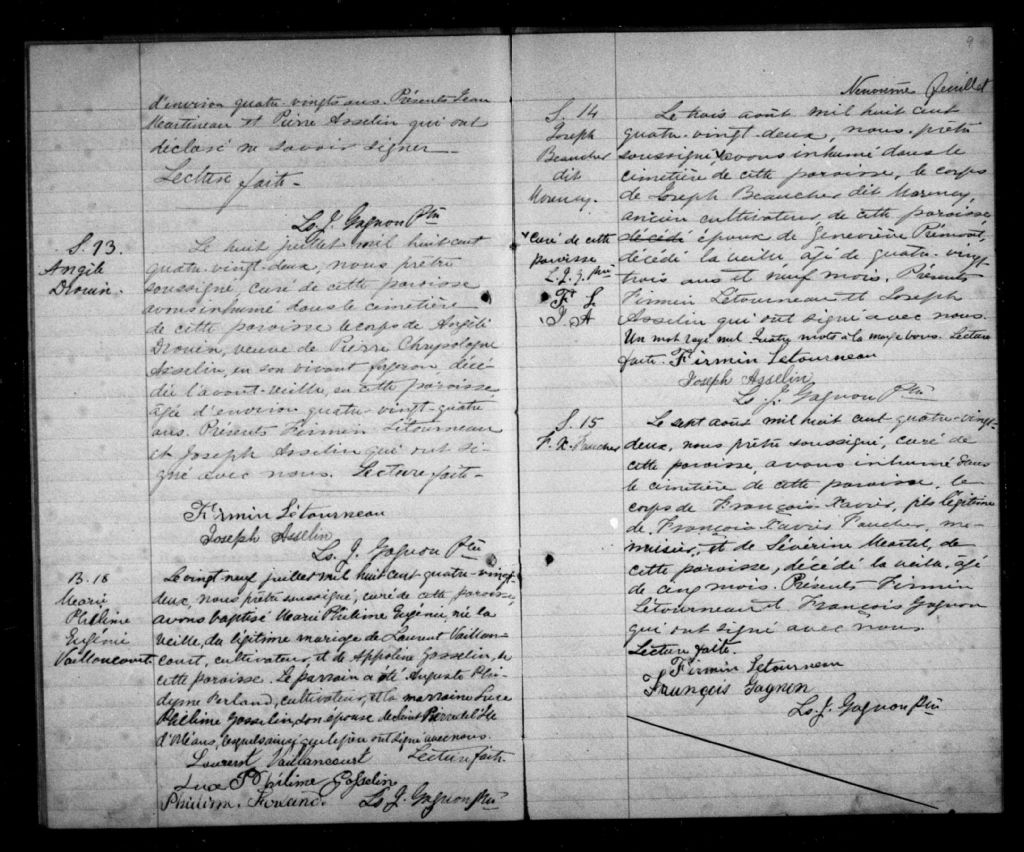 d'environ quatre-vingts ans. Présents Jean
Martineau et Pierre Asselin qui ont
déclaré ne savoir signer.
Lecture faite.
Ls. J. Gagnon Ptre
S. 13.
Angèle
Drouin.
Le huit juillet mil huit cent
quatre-vingt-deux, nous prêtre
soussigné, curé de cette paroisse
avons inhumé dans le cimetière
de cette paroisse le corps de Angèle
Drouin, veuve de Pierre Chrysologue
Asselin, en son vivant forgeron, décé-
dée l'avant-veille, en cette paroisse,
âgée d'environ quatre-vingt-quatre
ans. Présents Firmin Létourneau
et Joseph Asselin qui ont si-
gné avec nous. Lecture faite.
Firmin Létourneau
Joseph Asselin
Ls. J. Gagnon Ptre
B. 18
Marie
Philime
Eugénie
Vaillancourt
Le vingt neuf juillet mil huit cent quatre-vingt-
deux, nous prêtre soussigné, curé de cette paroisse,
avons baptisé Marie Philime Eugénie, née la
veille, du légitime mariage de Laurent Vaillan-
court, cultivateur, et de Appoline Gosselin, de
cette paroisse. Le parrain a été Auguste Phi-
dyme Ferland, cultivateur, et la marraine Luce
Philime Gosselin, son épouse de Saint Pierre de l'Ile
d'Orléans, lesquels ainsi que le père ont signé avec nous.
Laurent Vaillancourt Lecture faite.
Luce Philime Gosselin
Ferland. Ls. J. Gagnon Ptre
9
Neuvième feuillet
S. 14
Joseph
Beaucher
dit
Morency.
Le trois août mil huit cent
quatre-vingt-deux, nous, prêtre
soussigné avons inhumé dans le
cimetière de cette paroisse, le corps
de Joseph Beaucher dit Morency,
ancien cultivateur de cette paroisse
décédé époux de Geneviève Prémont,
décédé la veille, âgé de quatre-vingt-
trois ans et neuf mois. Présents
Firmin Létourneau et Joseph
Asselin qui ont signé avec nous.
Un mot rayé nul. Quatre mots à la marge bons. Lecture
faite. Firmin Létourneau
Joseph Asselin
Ls. J. Gagnon Ptre
curé de cette
paroisse
L. J. G. ptre
F. L
J. A
S. 15
F. X. Faucher
Le sept août mil huit cent quatre-vingt-
deux, nous prêtre soussigné, curé de
cette paroisse, avons inhumé dans
le cimetière de cette paroisse, le
corps de François-Xavier, fils légitime
de François-Xavier Faucher, me-
nuisier, et de Séverine Martel, de
cette paroisse, décédé la veille, âgé
de cinq mois. Présents Firmin
Létourneau et François Gagnon
qui ont signé avec nous.
Lecture faite.
Firmin Létourneau
François Gagnon
Ls. J. Gagnon Ptre